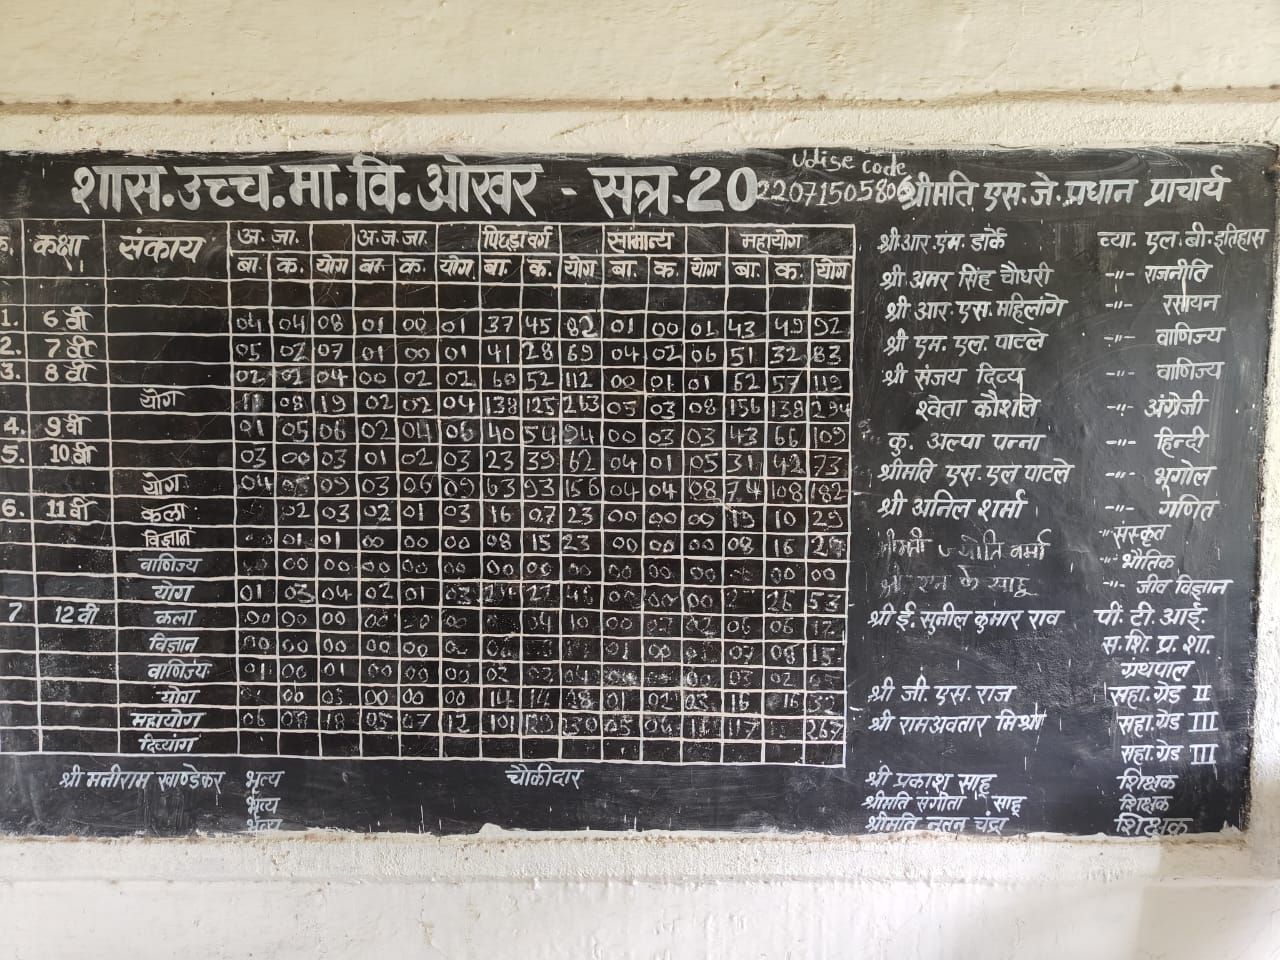 शास. उच्च. मा. वि. ओखर - सत्र-20
Udise code
22071505806
श्रीमति एस. जे. प्रधान प्राचार्य
क्र. कक्षा संकाय अ. जा. अ.ज.जा. पिछड़ा वर्ग सामान्य महायोग
बा. क. योग बा. क. योग बा. क. योग बा. क. योग बा. क. योग
1. 6 वी 04 04 08 01 00 01 37 45 82 01 00 01 43 49 92
2. 7 वी 05 02 07 01 00 01 41 28 69 04 02 06 51 32 83
3. 8 वी 02 02 04 00 02 02 60 52 112 00 01 01 62 57 119
योग 11 08 19 02 02 04 138 125 263 05 03 08 156 138 294
4. 9 वी 01 05 06 02 04 06 40 54 94 00 03 03 43 66 109
5. 10 वी 03 00 03 01 02 03 23 39 62 04 01 05 31 42 73
योग 04 05 09 03 06 09 63 93 156 04 04 08 74 108 182
6. 11 वी कला 02 03 02 01 03 16 07 23 00 00 00 19 10 29
विज्ञान 01 01 00 00 00 08 15 23 00 00 00 08 16
वाणिज्य 00 00 00 00 00 00 00 00 00 00 00 00 00
योग 01 03 04 02 01 03 00 00 00 26 53
7 12 वी कला 00 00 00 04 10 00 02 02 06 06 12
विज्ञान 00 00 00 00 00 01 00 07 08 15
वाणिज्य 01 00 01 00 00 00 02 02 04 03 02 05
योग 00 00 00 00 14 14 01 02 03 16 16 32
महायोग 06 08 18 05 07 12 101 05 06 11 117 267
दिव्यांग
श्री आर. एम. डार्के व्या. एल. बी. इतिहास
श्री अमर सिंह चौधरी -"- राजनीति
श्री आर. एस. महिलांगे -"- रसायन
श्री एम. एल. पाटले -"- वाणिज्य
श्री संजय दिव्य -"- वाणिज्य
श्वेता कौशले -"- अंग्रेजी
कु. अल्पा पन्ना -"- हिन्दी
श्रीमति एस. एल पाटले -"- भूगोल
श्री अनिल शर्मा -"- गणित
श्रीमती ज्योति वर्मा " संस्कृत
"- भौतिक
श्री एन के साहू -"- जीव विज्ञान
श्री ई. सुनील कुमार राव पी. टी. आई.
स. शि. प्र. शा.
ग्रंथपाल
श्री जी. एस. राज सहा. ग्रेड II
श्री रामअवतार मिश्रा सहा. ग्रेड III
सहा. ग्रेड III
श्री प्रकाश साहू शिक्षक
श्रीमति संगीता साहू शिक्षक
श्रीमति नूतन चंद्रा शिक्षक
श्री मनीराम खाण्डेकर भृत्य चौकीदार
भृत्य
भृत्य